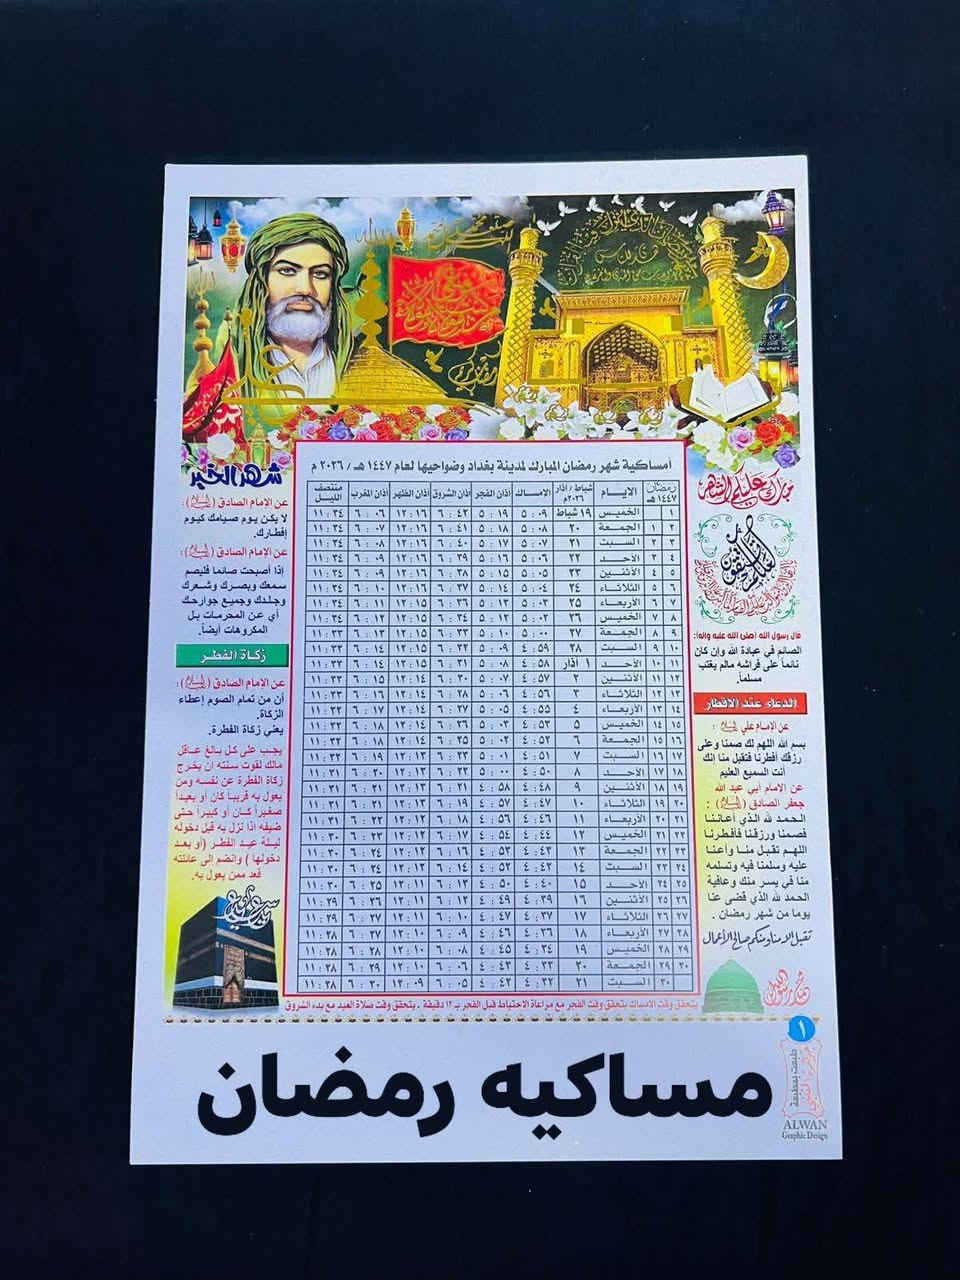 أمساكية شهر رمضان المبارك لمدينة بغداد وضواحيها لعام ١٤٤٧ هـ / ٢٠٢٦ م
رمضان ١٤٤٧ هـ الايـــام شباط / آذار ٢٠٢٦م الامساك أذان الفجر أذان الشروق أذان الظهر أذان المغرب منتصف الليل
١ الخميس ١٩ شباط ٥ : ٠٩ ٥ : ١٩ ٦ : ٤٢ ١٢ : ١٦ ٦ : ٠٦ ١١ : ٣٤
٢ ١ الجمعة ٢٠ ٥ : ٠٨ ٥ : ١٨ ٦ : ٤١ ١٢ : ١٦ ٦ : ٠٧ ١١ : ٣٤
٣ ٢ السبت ٢١ ٥ : ٠٧ ٥ : ١٧ ٦ : ٤٠ ١٢ : ١٦ ٦ : ٠٨ ١١ : ٣٤
٤ ٣ الأحد ٢٢ ٥ : ٠٦ ٥ : ١٦ ٦ : ٣٩ ١٢ : ١٦ ٦ : ٠٩ ١١ : ٣٤
٥ ٤ الأثنين ٢٣ ٥ : ٠٥ ٥ : ١٥ ٦ : ٣٨ ١٢ : ١٦ ٦ : ٠٩ ١١ : ٣٤
٦ ٥ الثلاثاء ٢٤ ٥ : ٠٤ ٥ : ١٤ ٦ : ٣٧ ١٢ : ١٦ ٦ : ١٠ ١١ : ٣٤
٧ ٦ الأربعاء ٢٥ ٥ : ٠٣ ٥ : ١٣ ٦ : ٣٦ ١٢ : ١٥ ٦ : ١١ ١١ : ٣٤
٨ ٧ الخميس ٢٦ ٥ : ٠٢ ٥ : ١٢ ٦ : ٣٤ ١٢ : ١٥ ٦ : ١٢ ١١ : ٣٤
٩ ٨ الجمعة ٢٧ ٥ : ٠٠ ٥ : ١٠ ٦ : ٣٣ ١٢ : ١٥ ٦ : ١٣ ١١ : ٣٣
١٠ ٩ السبت ٢٨ ٤ : ٥٩ ٥ : ٠٩ ٦ : ٣٢ ١٢ : ١٥ ٦ : ١٤ ١١ : ٣٣
١١ ١٠ الأحد ١ آذار ٤ : ٥٨ ٥ : ٠٨ ٦ : ٣١ ١٢ : ١٥ ٦ : ١٤ ١١ : ٣٣
١٢ ١١ الأثنين ٢ ٤ : ٥٧ ٥ : ٠٧ ٦ : ٣٠ ١٢ : ١٤ ٦ : ١٥ ١١ : ٣٣
١٣ ١٢ الثلاثاء ٣ ٤ : ٥٦ ٥ : ٠٦ ٦ : ٢٨ ١٢ : ١٤ ٦ : ١٦ ١١ : ٣٣
١٤ ١٣ الأربعاء ٤ ٤ : ٥٥ ٥ : ٠٥ ٦ : ٢٧ ١٢ : ١٤ ٦ : ١٧ ١١ : ٣٢
١٥ ١٤ الخميس ٥ ٤ : ٥٣ ٥ : ٠٣ ٦ : ٢٦ ١٢ : ١٤ ٦ : ١٨ ١١ : ٣٢
١٦ ١٥ الجمعة ٦ ٤ : ٥٢ ٥ : ٠٢ ٦ : ٢٥ ١٢ : ١٤ ٦ : ١٨ ١١ : ٣٢
١٧ ١٦ السبت ٧ ٤ : ٥١ ٥ : ٠١ ٦ : ٢٣ ١٢ : ١٣ ٦ : ١٩ ١١ : ٣٢
١٨ ١٧ الأحد ٨ ٤ : ٥٠ ٥ : ٠٠ ٦ : ٢٢ ١٢ : ١٣ ٦ : ٢٠ ١١ : ٣١
١٩ ١٨ الأثنين ٩ ٤ : ٤٨ ٤ : ٥٨ ٦ : ٢١ ١٢ : ١٣ ٦ : ٢١ ١١ : ٣١
٢٠ ١٩ الثلاثاء ١٠ ٤ : ٤٧ ٤ : ٥٧ ٦ : ٢٠ ١٢ : ١٣ ٦ : ٢١ ١١ : ٣١
٢١ ٢٠ الأربعاء ١١ ٤ : ٤٦ ٤ : ٥٦ ٦ : ١٨ ١٢ : ١٢ ٦ : ٢٢ ١١ : ٣١
٢٢ ٢١ الخميس ١٢ ٤ : ٤٤ ٤ : ٥٤ ٦ : ١٧ ١٢ : ١٢ ٦ : ٢٣ ١١ : ٣٠
٢٣ ٢٢ الجمعة ١٣ ٤ : ٤٣ ٤ : ٥٣ ٦ : ١٦ ١٢ : ١٢ ٦ : ٢٤ ١١ : ٣٠
٢٤ ٢٣ السبت ١٤ ٤ : ٤٢ ٤ : ٥٢ ٦ : ١٤ ١٢ : ١٢ ٦ : ٢٤ ١١ : ٣٠
٢٥ ٢٤ الأحد ١٥ ٤ : ٤٠ ٤ : ٥٠ ٦ : ١٣ ١٢ : ١١ ٦ : ٢٥ ١١ : ٣٠
٢٦ ٢٥ الأثنين ١٦ ٤ : ٣٩ ٤ : ٤٩ ٦ : ١٢ ١٢ : ١١ ٦ : ٢٦ ١١ : ٢٩
٢٧ ٢٦ الثلاثاء ١٧ ٤ : ٣٧ ٤ : ٤٧ ٦ : ١٠ ١٢ : ١١ ٦ : ٢٧ ١١ : ٢٩
٢٨ ٢٧ الأربعاء ١٨ ٤ : ٣٦ ٤ : ٤٦ ٦ : ٠٩ ١٢ : ١٠ ٦ : ٢٧ ١١ : ٢٨
٢٩ ٢٨ الخميس ١٩ ٤ : ٣٤ ٤ : ٤٥ ٦ : ٠٨ ١٢ : ١٠ ٦ : ٢٨ ١١ : ٢٨
٣٠ ٢٩ الجمعة ٢٠ ٤ : ٣٣ ٤ : ٤٣ ٦ : ٠٦ ١٢ : ١٠ ٦ : ٢٩ ١١ : ٢٨
٣٠ السبت ٢١ ٤ : ٣٢ ٤ : ٤٢ ٦ : ٠٥ ١٢ : ٠٩ ٦ : ٣٠ ١١ : ٢٨
يتحقق وقت الامساك بتحقق وقت الفجر مع مراعاة الاحتياط قبل الفجر بـ ١٢ دقيقة . يتحقق وقت صلاة العيد مع بدء الشروق
مبارك عليكم الشهر
لعلكم تتقون
قال رسول الله (صلى الله عليه واله):
الصائم في عبادة الله وإن كان
نائماً على فراشه مالم يغتب
مسلماً.
الدعاء عند الافطار
عن الإمام علي (عليه السلام) :
بسم الله اللهم لك صمنا وعلى
رزقك أفطرنا فتقبل منا إنك
أنت السميع العليم
عن الإمام أبي عبد الله
جعفر الصادق (عليه السلام) :
الحمد لله الذي أعاننا
فصمنا ورزقنا فأفطرنا
اللهم تقبل منا وأعنا
عليه وسلمنا فيه وتسلمه
منا في يسر منك وعافية
الحمد لله الذي قضى عنا
يوما من شهر رمضان .
تقبل الله منا ومنكم صالح الأعمال
محمد رسول الله
شهر الخير
عن الإمام الصادق (عليه السلام) :
لا يكن يوم صيامك كيوم
إفطارك.
عن الإمام الصادق (عليه السلام) :
إذا أصبحت صائما فليصم
سمعك وبصرك وشعرك
وجلدك وجميع جوارحك
أي عن المحرمات بل
المكروهات أيضاً.
زكاة الفطر
عن الإمام الصادق (عليه السلام) :
أن من تمام الصوم إعطاء
الزكاة.
يعني زكاة الفطرة.
يجب على كل بالغ عاقل
مالك لقوت سنته ان يخرج
زكاة الفطرة عن نفسه ومن
يعول به قريبا كان أو بعيداً
صغيراً كان أو كبيراً حتى
ضيفه اذا نزل به قبل دخوله
ليلة عيد الفطر (او بعد
دخولها ) وانضم الى عائلته
فعد ممن يعول به.
عيد سعيد
١
ALWAN
Graphic Design
مساكيه رمضان